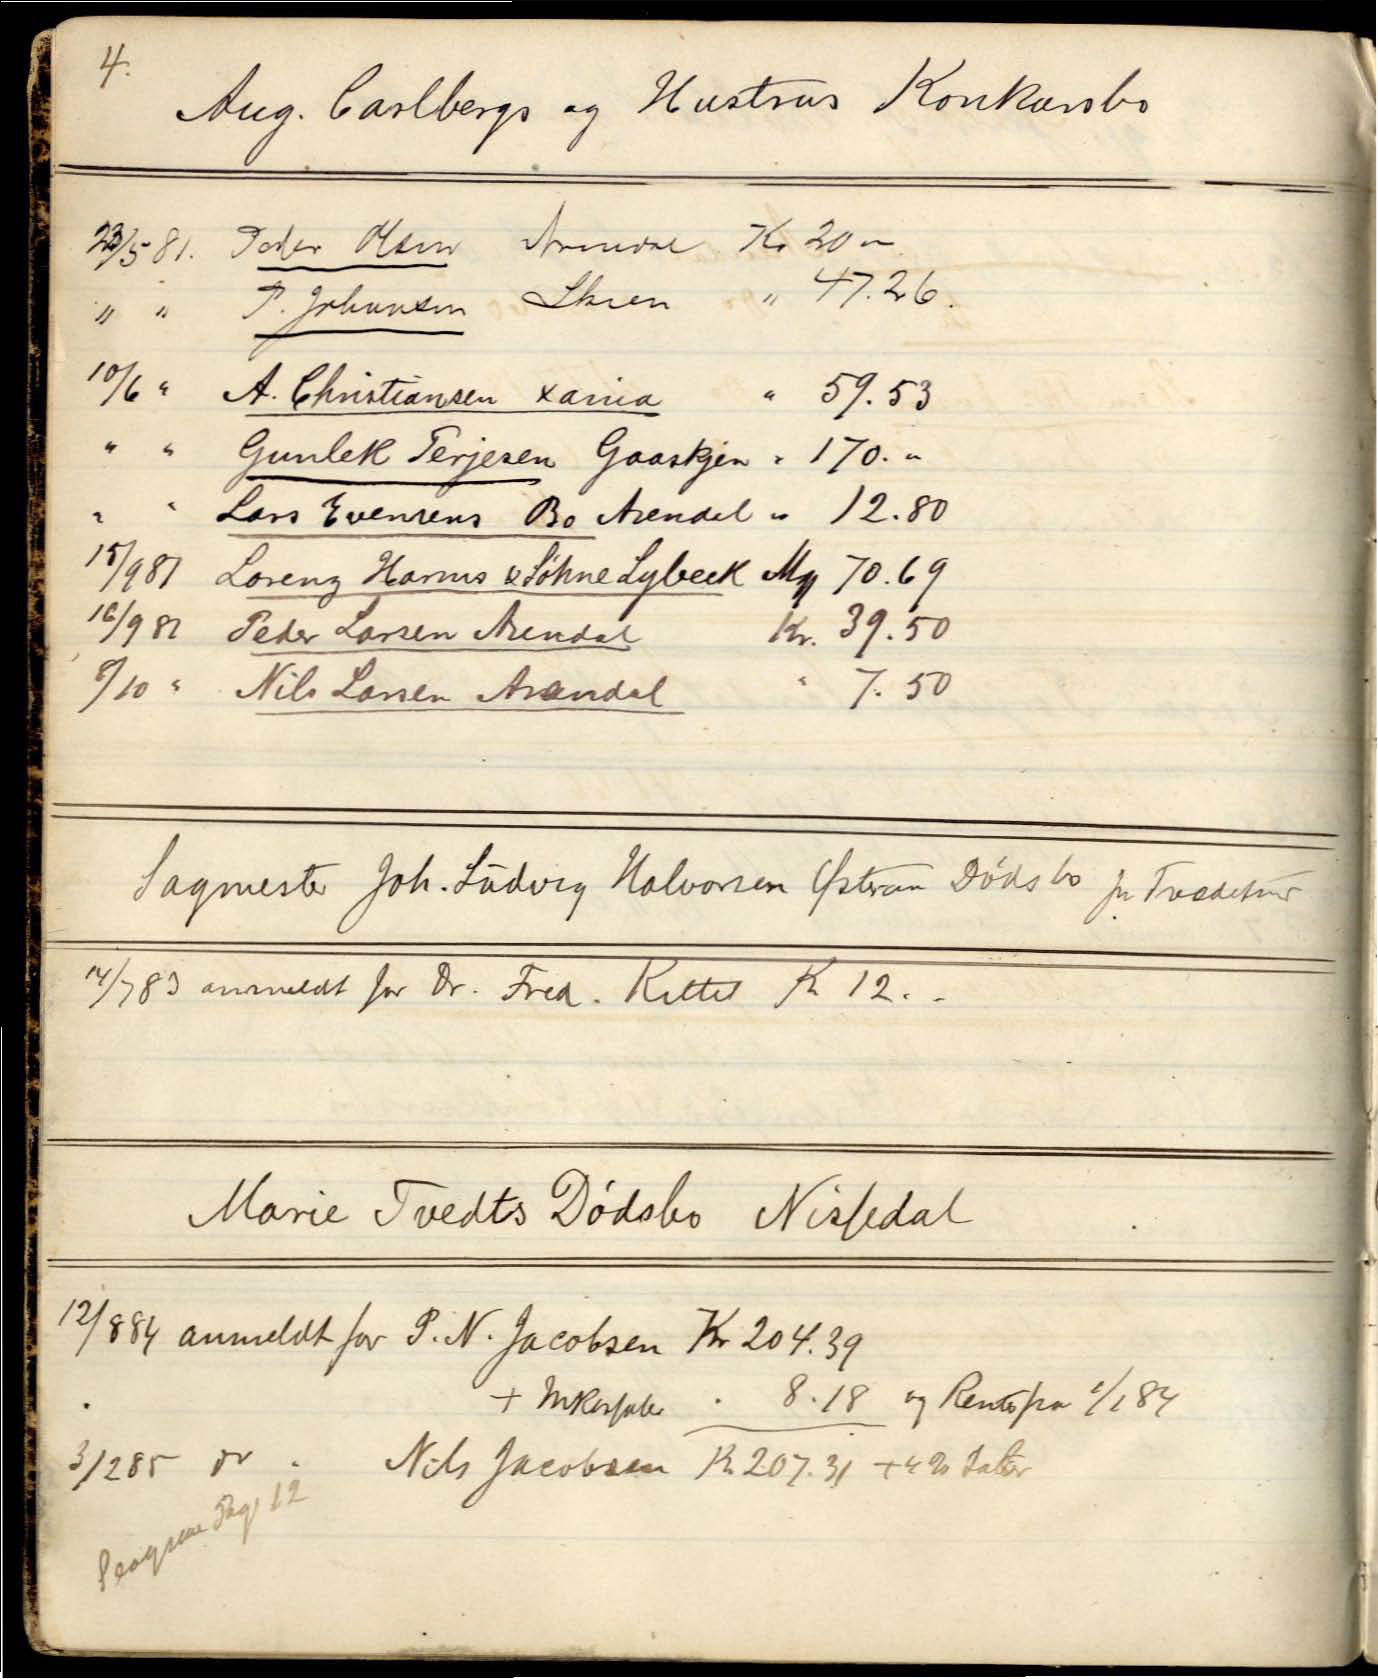 4.
Aug. Carlbergs og Hustrus Konkursbo
23/5 81. Peder Olsen Arendal Kr 20 "
" " P. Johansen Skien " 47.26.
10/6 " A. Christiansen Xania " 59.53
" " Gunlek Terjesen Gaaskjen " 170. "
" " Lars Evensens Bo Arendal " 12.80
15/9 81 Lorenz Harms & Söhne Lybeck Mk 70.69
16/9 81 Peder Larsen Arendal Kr. 39.50
8/10 " Nils Larsen Arendal " 7.50
Sagmester Joh. Ludvig Halvorsen Dödsbo
14/7 83 anmeldt for Dr. Fred. Kittel Kr 12. -
Marie Tvedts Dödsbo Nissedal
12/8 84 anmeldt for P. N. Jacobsen Kr 204.39
+ 8.18 og Renter fra 1/1 84
3/2 85 do " Nils Jacobsen Kr 207.31 + 4%
Pag 12